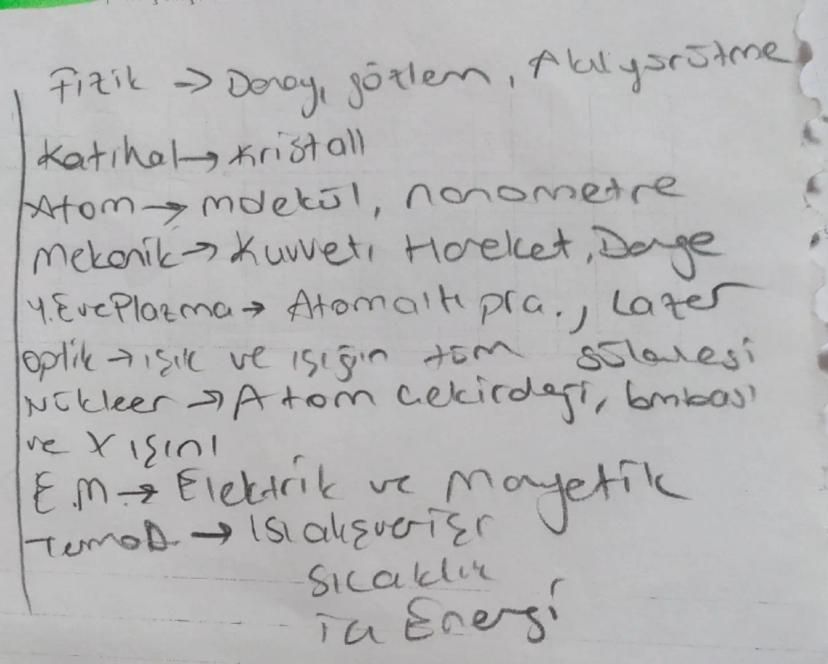 Fizik → Deney, gözlem, Akıl yürütme
Katıhal → Kristall
Atom → molekül, nanometre
Mekanik → Kuvvet, Hareket, Denge
Y.E ve Plazma → Atomaltı pra., Lazer
Optik → ışık ve ışığın tüm
Nükleer → Atom Çekirdeği, bmbası
ve X ışını
E.M → Elektrik ve Manyetik
TermoD. → Isı alışverişi
Sıcaklık
Enerji